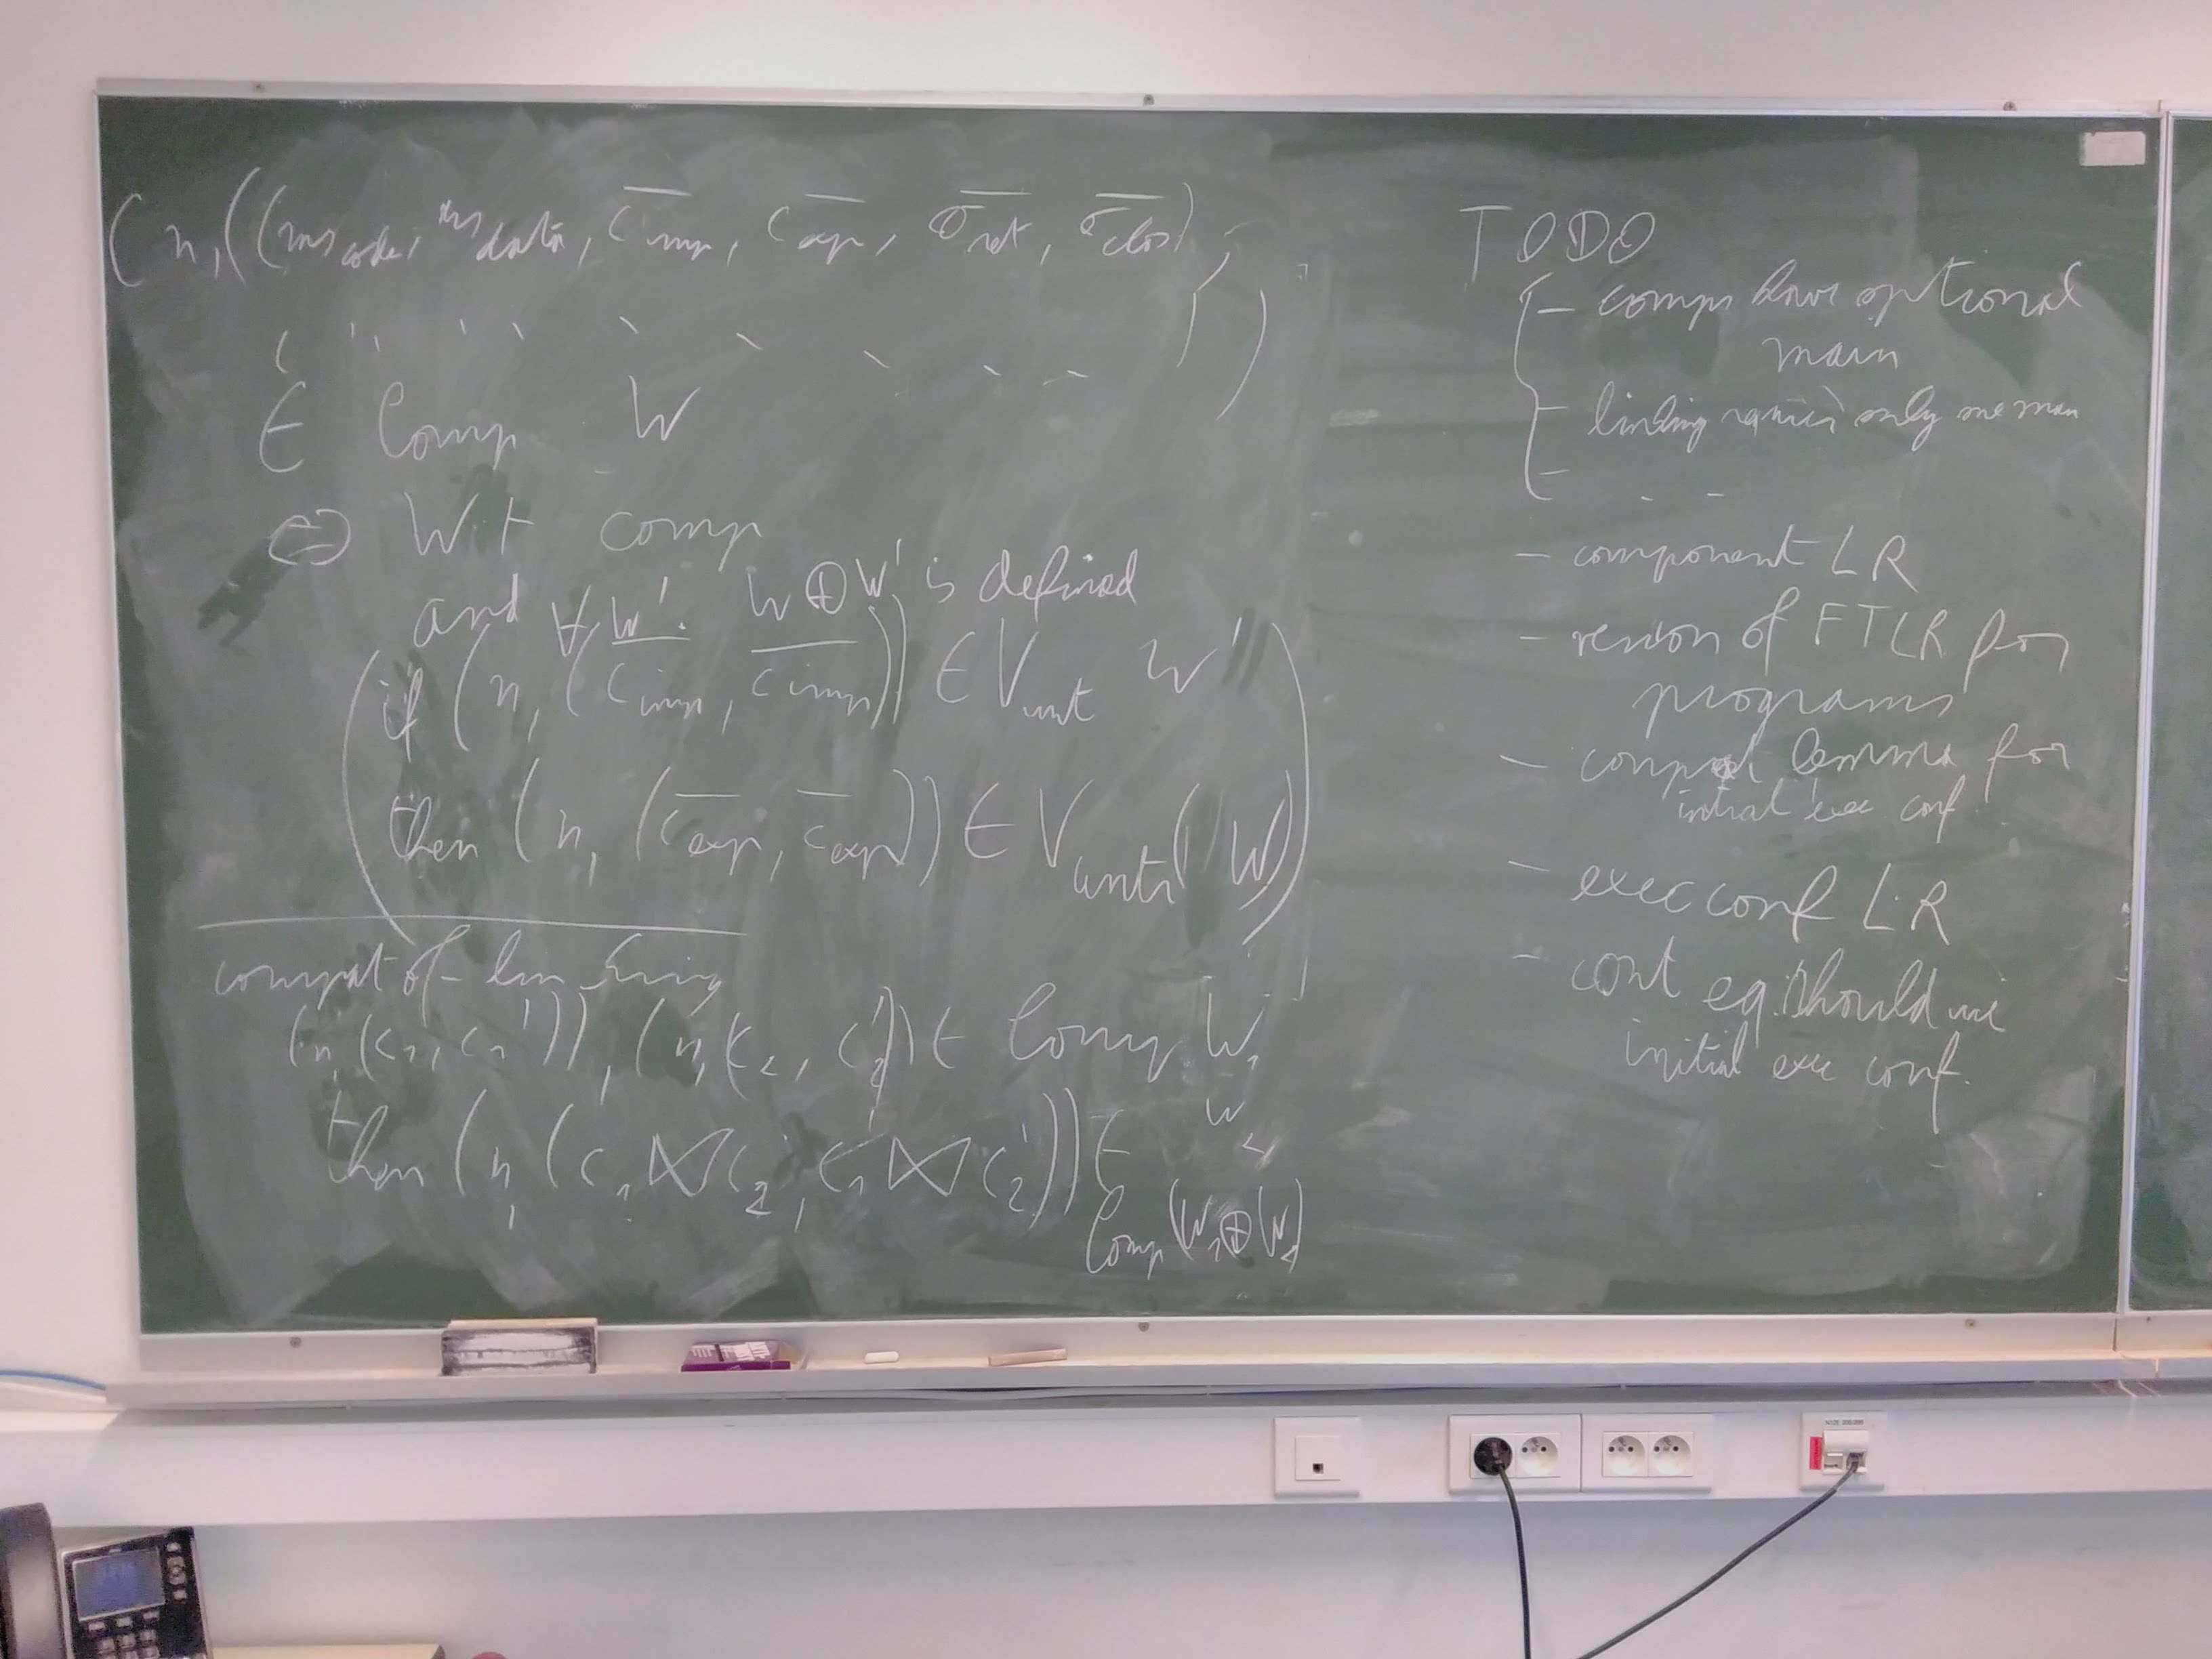 (n, ((ms_code, ms_data, \overline{c_imp}, \overline{c_exp}, \overline{σ_ret}, \overline{σ_clos}),
∈ Comp W
⇔ W ⊢ comp
and ∀ W'. W ⊕ W' is defined
if (n, (\overline{c_imp}, \overline{c_imp})) ∈ V_unt W'
then (n, (\overline{c_exp}, \overline{c_exp})) ∈ V_untr(W)
compat of linking
(n, (c_1, c_1')), (n, (c_2, c_2')) ∈ Comp W_1
W_2
then (n, (c_1 ⋈ c_2, c_1' ⋈ c_2')) ∈
Comp (W_1 ⊕ W_2)
TODO
- comps have optional
main
- linking requires only one main
- . .
- component LR
- version of FTLR for
programs
- compat lemma for
initial exec conf
- exec conf LR
- cont eq. should use
initial exec conf.